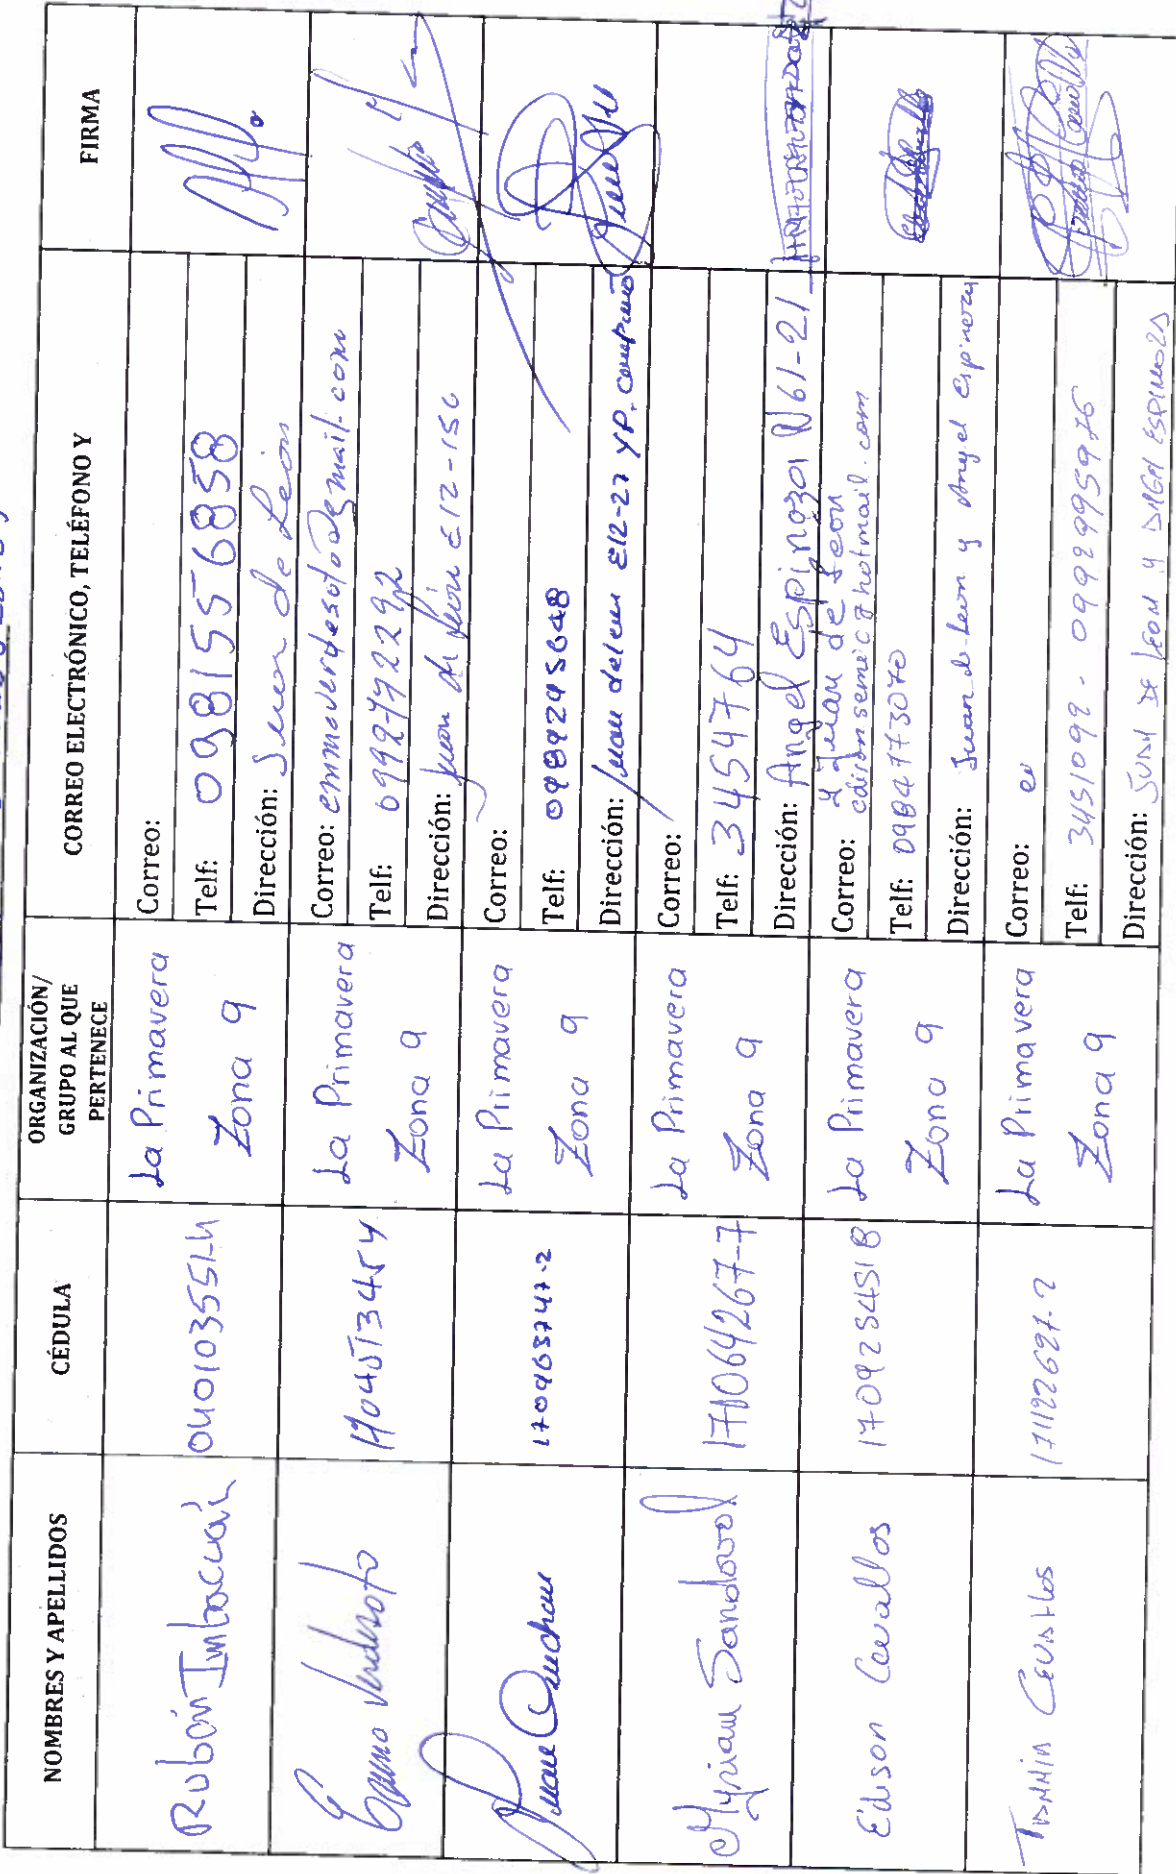 NOMBRES Y APELLIDOS CÉDULA ORGANIZACIÓN/ GRUPO AL QUE PERTENECE CORREO ELECTRÓNICO, TELÉFONO Y FIRMA
Rubén Imbacuán 040103551-4 La Primavera Zona 9
Correo:
Telf: 0981556858
Dirección: Juan de León
Emma Verdesoto 1704513454 La Primavera Zona 9
Correo: emmaverdesoto@gmail.com
Telf: 0992792292
Dirección: Juan de León E12-156
170963747-2 La Primavera Zona 9
Correo:
Telf: 0989295648
Dirección: Juan de León E12-27 y P.
Myriam Sandoval 171064267-7 La Primavera Zona 9
Correo:
Telf: 3454764
Dirección: Angel Espinoza N61-21
y Juan de León
Edison Cevallos 1709254518 La Primavera Zona 9
Correo: edisonsemic@hotmail.com
Telf: 0984773070
Dirección: Juan de Leon y Angel Espinoza
Cevallos 171122697-2 La Primavera Zona 9
Correo:
Telf: 3451092 - 0992995976
Dirección: JUAN DE LEON Y ANGEL ESPINOZA